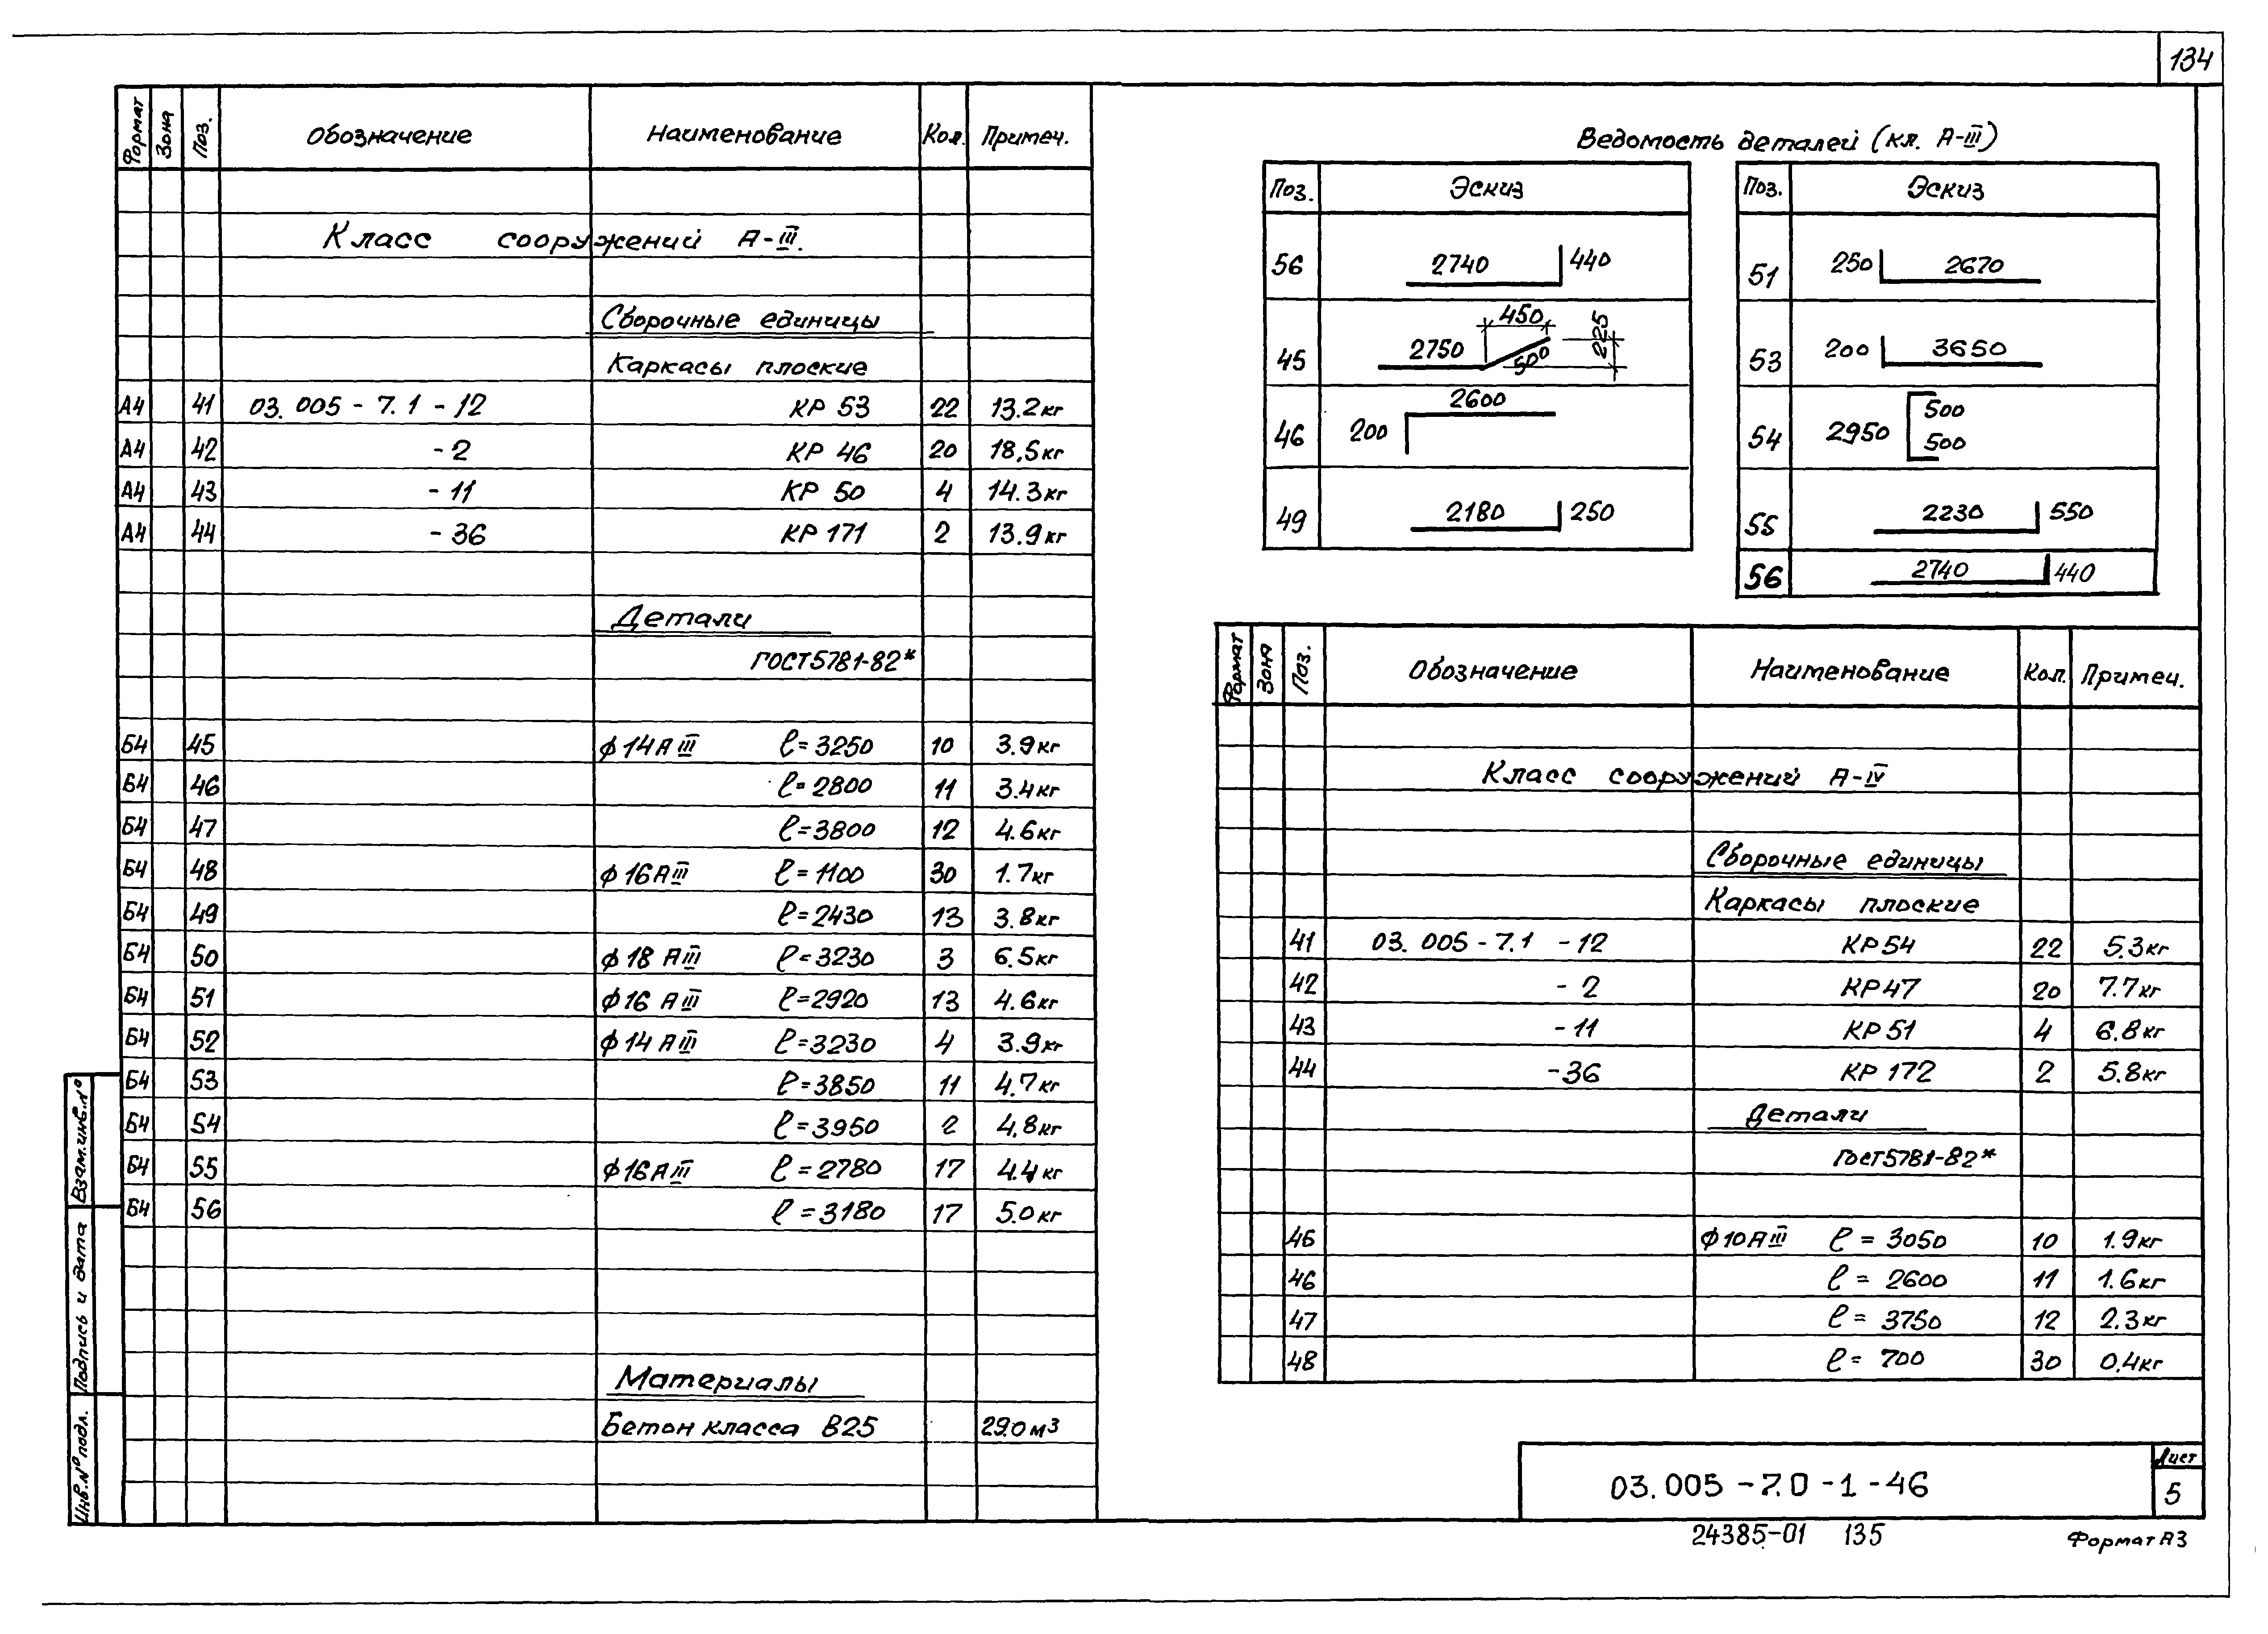 134
Формат Зона Поз. Обозначение Наименование Кол. Примеч.
Класс сооружений А-III.
Сборочные единицы
Каркасы плоские
А4 41 03.005-7.1-12 КР 53 22 13.2кг
А4 42 -2 КР 46 20 18,5кг
А4 43 -11 КР 50 4 14.3кг
А4 44 -36 КР 171 2 13.9кг
Детали
ГОСТ5781-82*
Б4 45 ф14АIII ℓ=3250 10 3.9кг
Б4 46 ℓ=2800 11 3.4кг
Б4 47 ℓ=3800 12 4.6кг
Б4 48 ф16АIII ℓ=1100 30 1.7кг
Б4 49 ℓ=2430 13 3.8кг
Б4 50 ф18 АIII ℓ=3230 3 6.5кг
Б4 51 ф16 АIII ℓ=2920 13 4.6кг
Б4 52 ф14 АIII ℓ=3230 4 3.9кг
Б4 53 ℓ=3850 11 4.7кг
Б4 54 ℓ=3950 2 4.8кг
Б4 55 ф16АIII ℓ=2780 17 4.4кг
Б4 56 ℓ=3180 17 5.0кг
Материалы
Бетон класса В25 29.0м³
Взам.инв.№
Подпись и дата
Инв.№подл.
Ведомость деталей (кл. А-III)
Поз. Эскиз
56 2740 440
45 2750 450 500 225
46 200 2600
49 2180 250
Поз. Эскиз
51 250 2670
53 200 3650
54 2950 500 500
55 2230 550
56 2740 440
Формат Зона Поз. Обозначение Наименование Кол. Примеч.
Класс сооружений А-IV
Сборочные единицы
Каркасы плоские
41 03.005-7.1 -12 КР54 22 5.3кг
42 -2 КР47 20 7.7кг
43 -11 КР51 4 6.8кг
44 -36 КР 172 2 5.8кг
Детали
Гост5781-82*
46 ф10АIII ℓ= 3050 10 1.9кг
46 ℓ= 2600 11 1.6кг
47 ℓ= 3750 12 2.3кг
48 ℓ= 700 30 0.4кг
03.005-7.0-1-46
Лист
5
24385-01 135
Формат А3